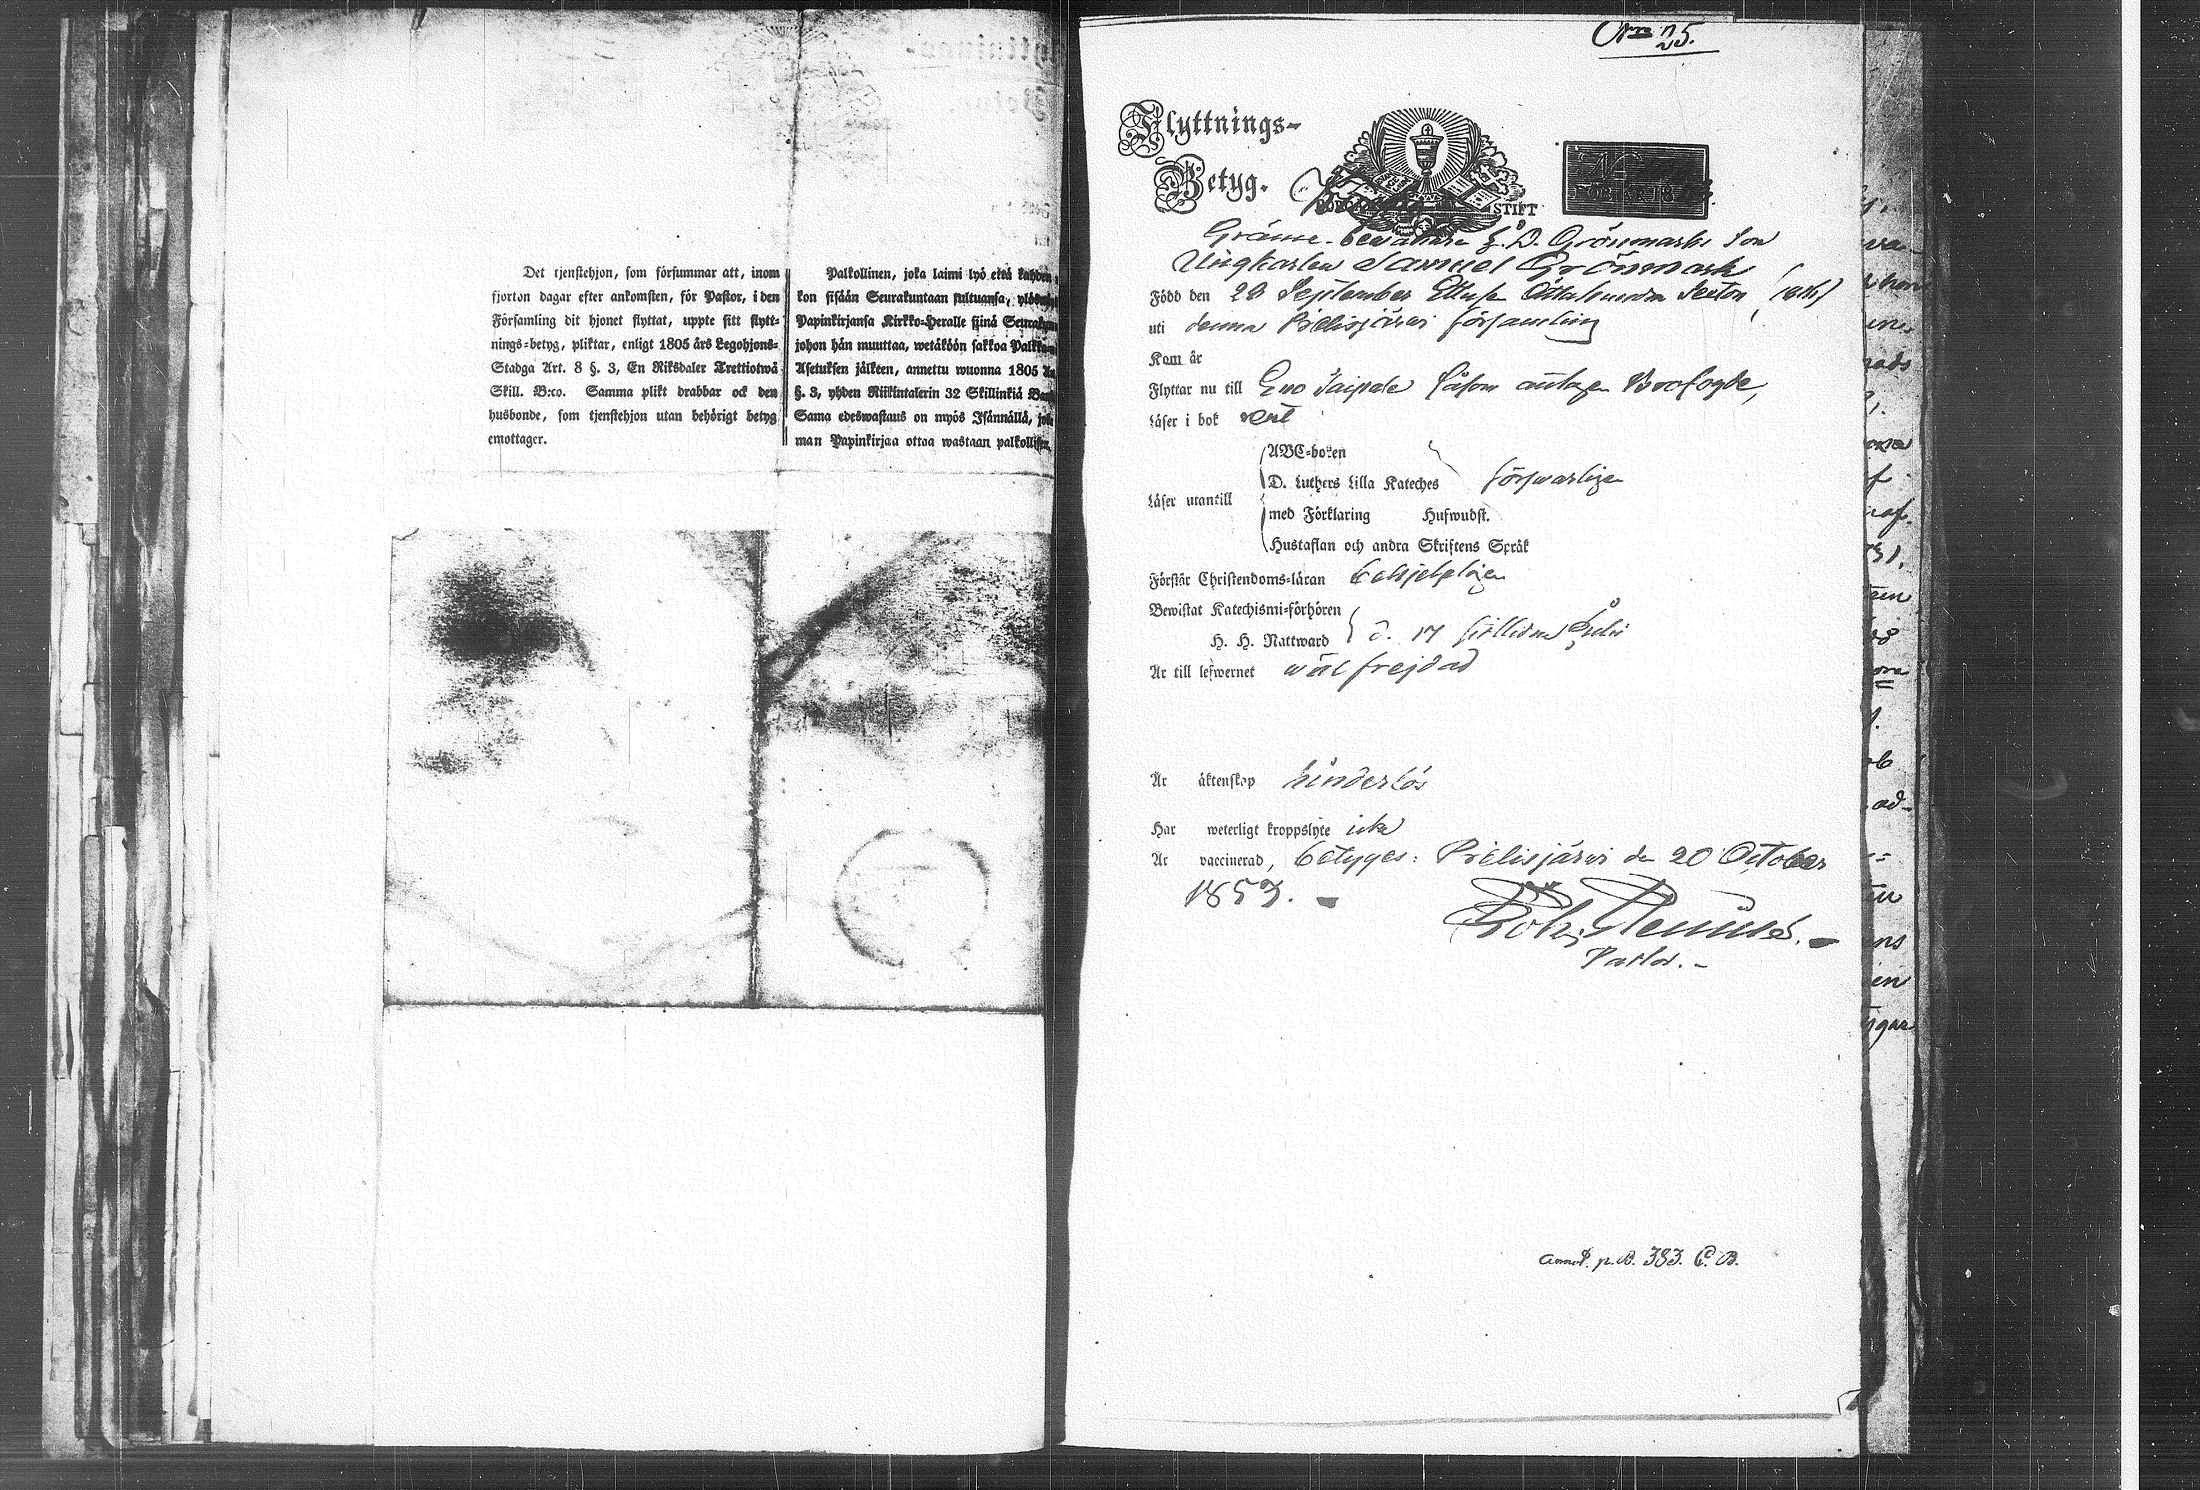 Det tjenstehjon, som försummar att, inom
fjorton dagar efter ankomsten, för Pastor, i den
Församling dit hjonet flyttat, uppte sitt flytt-
nings-betyg, pliktar, enligt 1805 års Legohjons-
Stadga Art. 8 §. 3, En Riksdaler Trettiotwå
Skill. B:co. Samma plikt drabbar ock den
husbonde, som tjenstehjon utan behörigt betyg
emottager.
Palkollinen, joka laimi lyö että kahden
kon sisään Seurakuntaan tultuansa,
Papinkirjansa Kirkko-Heralle siinä
johon hän muuttaa, wetäköön sakkoa
Asetuksen jälkeen, annettu wuonna 1805
§. 3, yhden Riikintalerin 32 Skillinkiä
Sama edeswastaus on myös Isännällä,
man Papinkirjaa ottaa wastaan
Flyttnings-
Betyg.
STIFT
Son
Ungkarlen Samuel Grönmark
Född den 29 September Ettusen Åttahundra Sexton (1816)
uti denna Pielisjärvi församling
Kom år
Flyttar nu till Eno Kaipale såsom antagen Brofogde,
Läser i bok väl
ABC-boken
D. Luthers Lilla Kateches försvarligen
Läser utantill
med Förklaring Hufwudst.
Hustaflan och andra Skriftens Språk
Förstår Christendoms-läran behjelpligen
Bewistat Katechismi-förhören
H. H. Nattward d. 17 Julii
Är till lefwernet wäl frejdad
Är äktenskap hinderlös
Har weterligt kroppslyte icke
Är vaccinerad, betygas: Pielisjärvi den 20 October
1853.
Pastor.
Annot. p. 383. C. B.